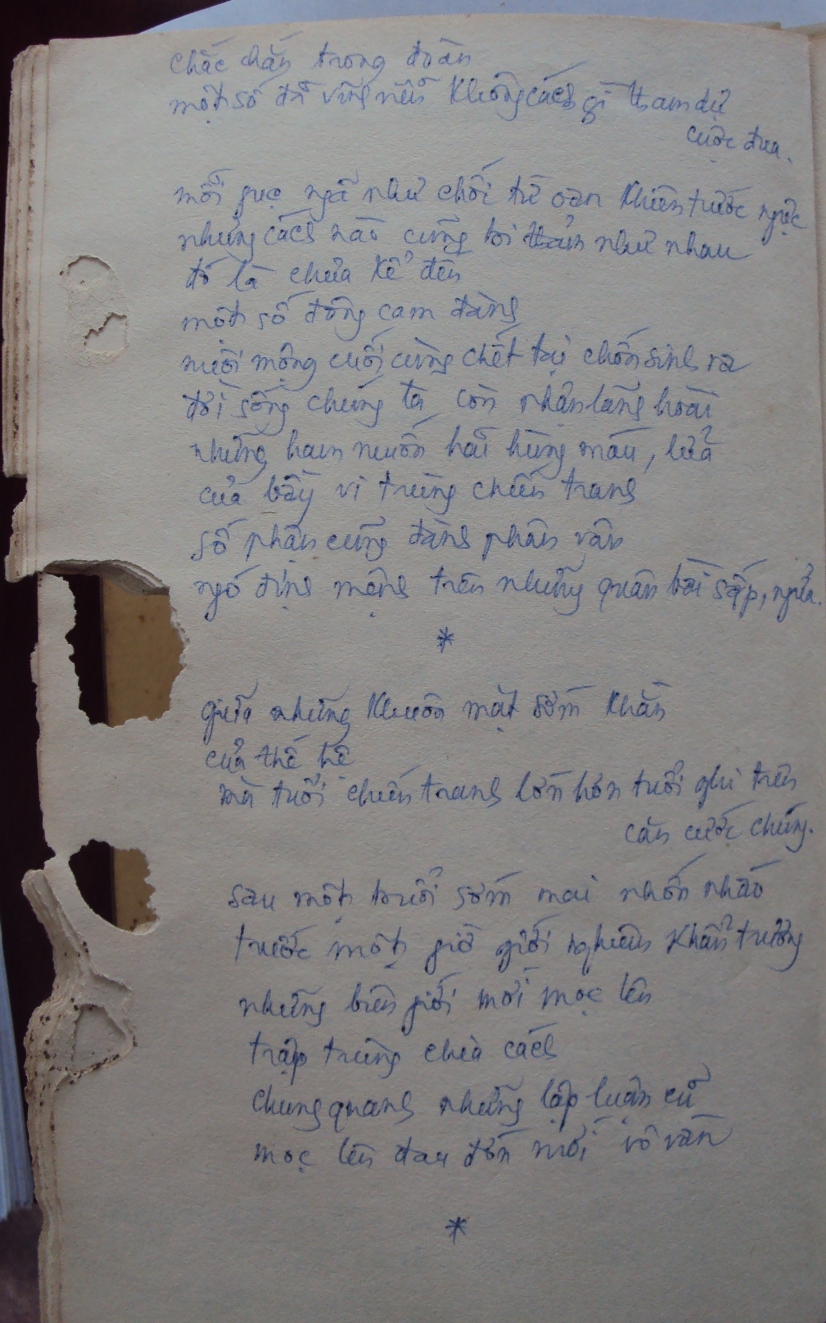 chắc chắn trong đoàn
một số đã vĩnh viễn không cách gì tham dự
cuộc đua.
mỗi gục ngã như chối từ oan khiên trước ngực
nhưng cách nào cũng bi thảm như nhau
đó là chưa kể đến
một số đông cam đành
nuôi mộng cuối cùng chết tại chốn sinh ra
đời sống chúng ta còn nhận lãnh hoài
những ham muốn hãi hùng máu, lửa
của bầy vi trùng chiến tranh
số phận cũng đành phân vân
ngó định mệnh trên những quân bài sấp, ngửa.
*
giữa những khuôn mặt sớm khằn
của thế hệ
mà tuổi chiến tranh lớn hơn tuổi ghi trên
căn cước chúng.
sau một buổi sớm mai nhốn nháo
trước một giờ giới nghiêm khẩn trương
những biên giới mới mọc lên
trập trùng chia cách
chung quanh những lập luận cũ
mọc lên đau đớn mới vô vàn
*